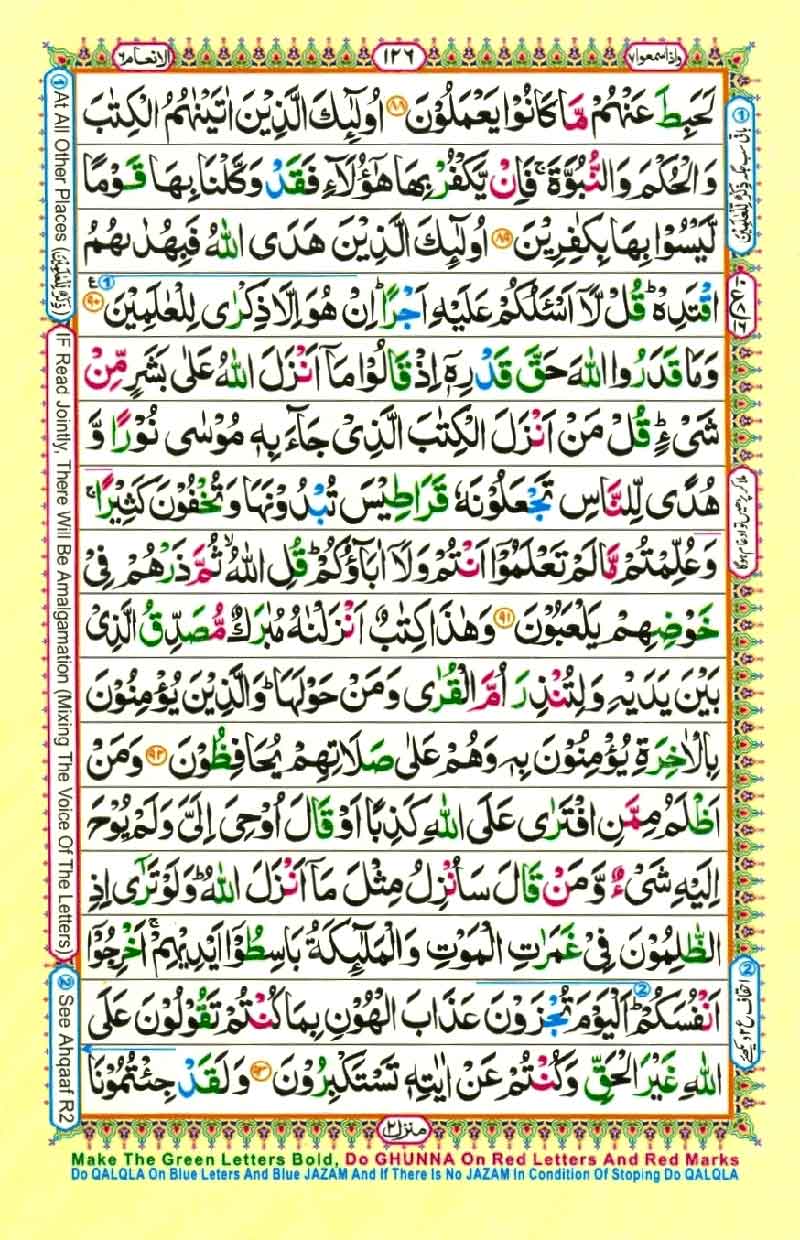 واذاسمعوا۷
۱۲۶
الانعام۶
لَحَبِطَ عَنْهُمْ مَّا كَانُوْا يَعْمَلُوْنَ ﴿۸۸﴾ اُولٰٓئِكَ الَّذِيْنَ اٰتَيْنٰهُمُ الْكِتٰبَ
وَالْحُكْمَ وَالنُّبُوَّةَ ۚ فَاِنْ يَّكْفُرْ بِهَا هٰٓؤُلَآءِ فَقَدْ وَكَّلْنَا بِهَا قَوْمًا
لَّيْسُوْا بِهَا بِكٰفِرِيْنَ ﴿۸۹﴾ اُولٰٓئِكَ الَّذِيْنَ هَدَى اللّٰهُ فَبِهُدٰىهُمُ
اقْتَدِهْ ؕ قُلْ لَّاۤ اَسْـَٔلُكُمْ عَلَيْهِ اَجْرًا ؕ اِنْ هُوَ اِلَّا ذِكْرٰى لِلْعٰلَمِيْنَ ﴿۹۰﴾
وَمَا قَدَرُوا اللّٰهَ حَقَّ قَدْرِهٖۤ اِذْ قَالُوْا مَاۤ اَنْزَلَ اللّٰهُ عَلٰى بَشَرٍ مِّنْ
شَىْءٍ ؕ قُلْ مَنْ اَنْزَلَ الْكِتٰبَ الَّذِىْ جَآءَ بِهٖ مُوْسٰى نُوْرًا وَّ
هُدًى لِّلنَّاسِ تَجْعَلُوْنَهٗ قَرَاطِيْسَ تُبْدُوْنَهَا وَتُخْفُوْنَ كَثِيْرًا ۚ
وَعُلِّمْتُمْ مَّا لَمْ تَعْلَمُوْۤا اَنْتُمْ وَلَاۤ اٰبَآؤُكُمْ ؕ قُلِ اللّٰهُ ۙ ثُمَّ ذَرْهُمْ فِىْ
خَوْضِهِمْ يَلْعَبُوْنَ ﴿۹۱﴾ وَهٰذَا كِتٰبٌ اَنْزَلْنٰهُ مُبٰرَكٌ مُّصَدِّقُ الَّذِىْ
بَيْنَ يَدَيْهِ وَلِتُنْذِرَ اُمَّ الْقُرٰى وَمَنْ حَوْلَهَا ؕ وَالَّذِيْنَ يُؤْمِنُوْنَ
بِالْاٰخِرَةِ يُؤْمِنُوْنَ بِهٖ وَهُمْ عَلٰى صَلَاتِهِمْ يُحَافِظُوْنَ ﴿۹۲﴾ وَمَنْ
اَظْلَمُ مِمَّنِ افْتَرٰى عَلَى اللّٰهِ كَذِبًا اَوْ قَالَ اُوْحِىَ اِلَىَّ وَلَمْ يُوْحَ
اِلَيْهِ شَىْءٌ وَّمَنْ قَالَ سَاُنْزِلُ مِثْلَ مَاۤ اَنْزَلَ اللّٰهُ ؕ وَلَوْ تَرٰٓى اِذِ
الظّٰلِمُوْنَ فِىْ غَمَرٰتِ الْمَوْتِ وَالْمَلٰٓئِكَةُ بَاسِطُوْۤا اَيْدِيْهِمْ ۚ اَخْرِجُوْۤا
اَنْفُسَكُمْ ؕ اَلْيَوْمَ تُجْزَوْنَ عَذَابَ الْهُوْنِ بِمَا كُنْتُمْ تَقُوْلُوْنَ عَلَى
اللّٰهِ غَيْرَ الْحَقِّ وَكُنْتُمْ عَنْ اٰيٰتِهٖ تَسْتَكْبِرُوْنَ ﴿۹۳﴾ وَلَقَدْ جِئْتُمُوْنَا
منزل۲
① At All Other Places (ذِكْرٌ لِّلْعٰلَمِيْنَ)
IF Read Jointly, There Will Be Amalgamation (Mixing The Voice Of The Letters)
② See Ahqaaf R2
① باقی سب جگہ ذِكْرٌ لِّلْعٰلَمِيْنَ
ملاکر پڑھیں تو ادغام ہوگا
② احقاف ع ۲ دیکھئے
Make The Green Letters Bold, Do GHUNNA On Red Letters And Red Marks
Do QALQLA On Blue Leters And Blue JAZAM And If There Is No JAZAM In Condition Of Stoping Do QALQLA